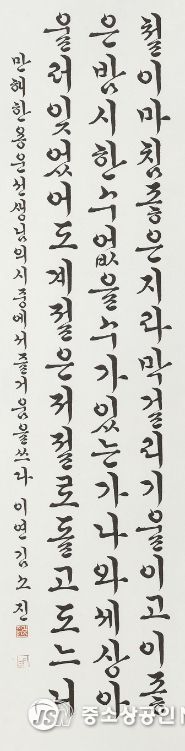 철이마침좋은지라막걸리기울이고이좋
은밤시한수없을수가있는가나와세상아
울러잊었어도계절은저절로돌고도느니
만해한용운선생님의시중에서즐거움을쓰라 이연김노진
JSN 중소상공인